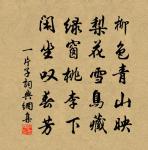 柳色青山映
梨花雪鳥藏
绿窗桃李下
閑坐叹春芳
一片子詞典網集